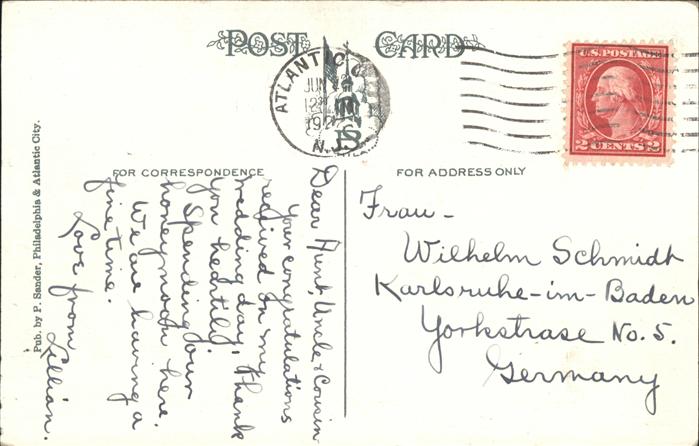 POST CARD
ATLANTIC C
JUN
12
N.J.
U.S. POSTAGE
2 CENTS 2
FOR CORRESPONDENCE
FOR ADDRESS ONLY
Dear Aunt, Uncle & Cousin
Your congratulations
received on my
wedding day, thank
you heartily.
Spending our
honeymoon here.
We are having a
fine time.
Love from
Lillian.
Frau -
Wilhelm Schmidt
Karlsruhe-im-Baden
Yorkstrase No. 5.
Germany
Pub. by P. Sander, Philadelphia & Atlantic City.